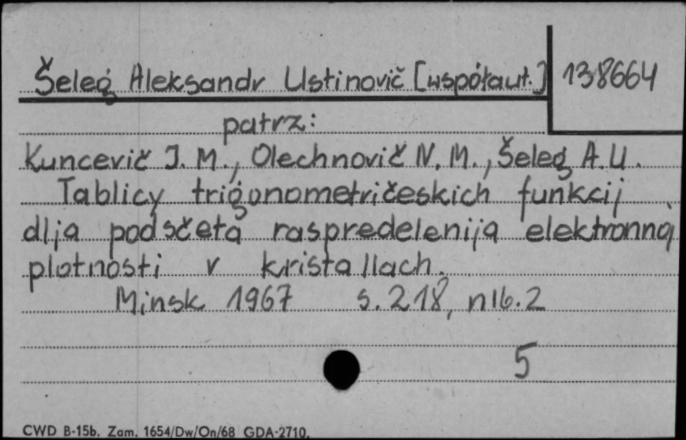 Šeleg Aleksandr Ustinovič [współaut.] 138664
patrz:
Kuncevič I. M., Olechnovič N. M., Šeleg A. U.
Tablicy trigonometričeskich funkcij
dlja podsčeta raspredelenija elektronnoj
plotnosti v kristallach.
Minsk 1967 s. 218, nlb. 2
5
CWD B-15b. Zam. 1654/Dw/On/68 GDA-2710.